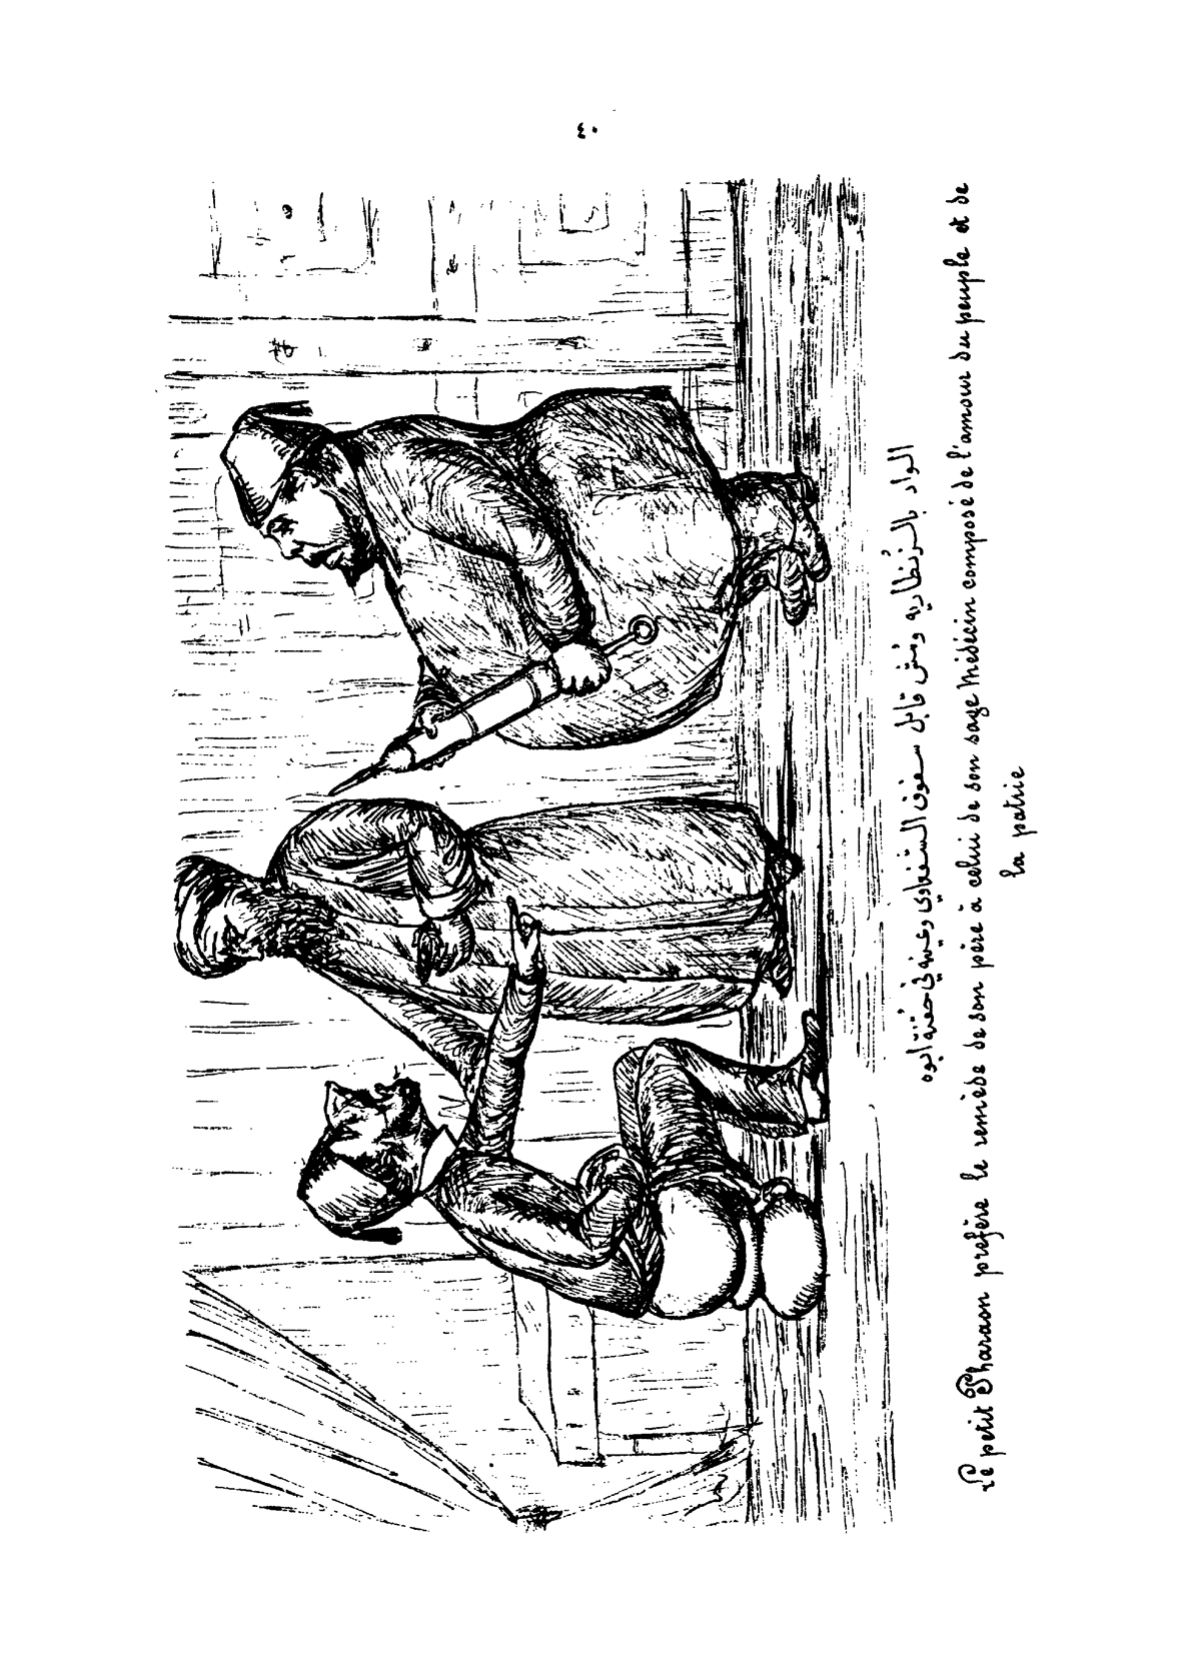 ٤٠
الواد بالدنظاريه ومُش قابل سفوف الشعراوى وعينه في حُقنة ابوه
Le petit Pharaon préfère le remède de son père à celui de son sage Médecin composé de l'amour du peuple et de
la patrie